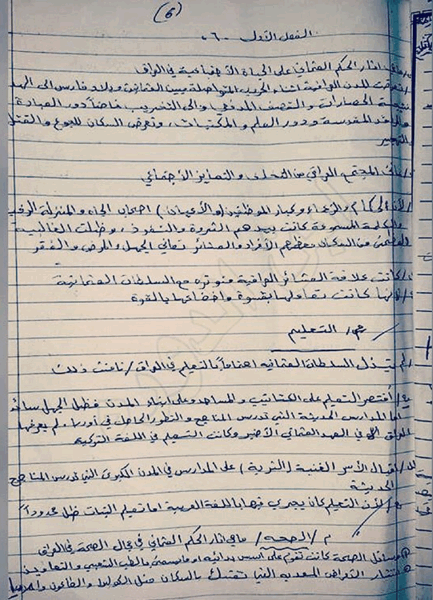 (٦)
الفصل الأول - ٦ -
ماهي اثار الحكم العثماني على الحياة الاجتماعية في العراق
تعرضت المدن العراقية اثناء الحروب المتواصلة بين العثمانيين وبلاد فارس الى الهدم
نتيجة الحصارات والقصف المدفعي والى التخريب فاضاً دور العبادة
والمراقد المقدسة ودور العلم والمكتبات، وتعرض السكان للجوع والقتل
والتهجير
عانى المجتمع العراقي من التخلف والتمايز الاجتماعي
لأن الحكام والزعماء وكبار الموظفين (والأعيان) اصحاب الجاه والمنزلة الرفيعة
والكلمة المسموعة كانت بيدهم الثروة والنفوذ، وظلت الغالبية
العظمى من السكان بعظهم الأفراد والعشائر تعاني الجهل والمرض والفقر
كانت علاقة العشائر العراقية متوترة مع السلطات العثمانية
لأنها كانت تعاملها بقسوة واخضاعها بالقوة
م/ التعليم
لم تبذل السلطات العثمانية اهتماماً بالتعليم في العراق/ ناقش ذلك
ج/ أقتصر التعليم على الكتاتيب والمساجد وعلى ابناء المدن فظل الجهل سائد
أما المدارس الحديثة التي تدرس المناهج والتطور الحاصل في أوربا، لم يعرفها
العراق إلا في العهد العثماني الأخير وكانت التعليم في اللغة التركية
إقبال الأسر الغنية (الثرية) على المدارس في المدن الكبرى التي تدرس المناهج
الحديثة
ج/ لأن التعليم كان يجري فيها باللغة العربية اما تعليم البنات ظل محدوداً
م/ الصحة/ ماهي اثار الحكم العثماني في مجال الصحة في العراق
وسائل الصحة كانت تقوم على أسس بدائية او مايسمى بالطب الشعبي والتعاويذ
انتشار الأمراض المعدية التي تفتك بالسكان مثل الكوليرا والطاعون والملاريا